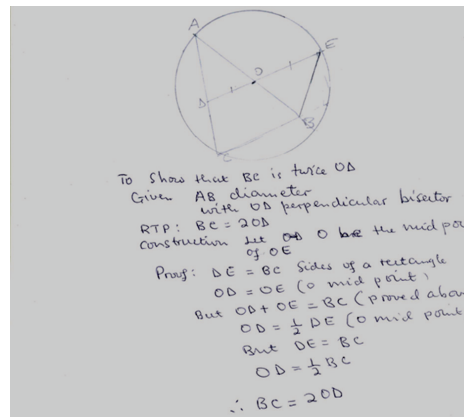 A
E
O
D
B
C
To Show that BC is twice OD
Given AB diameter
with OD perpendicular bisector
RTP: BC = 2OD
construction Let O be the mid po
of OE
Proof: DE = BC Sides of a rectangle
OD = OE (O mid point)
But OD + OE = BC (proved abov
OD = ½ DE (O mid point
But DE = BC
OD = ½ BC
∴ BC = 2OD